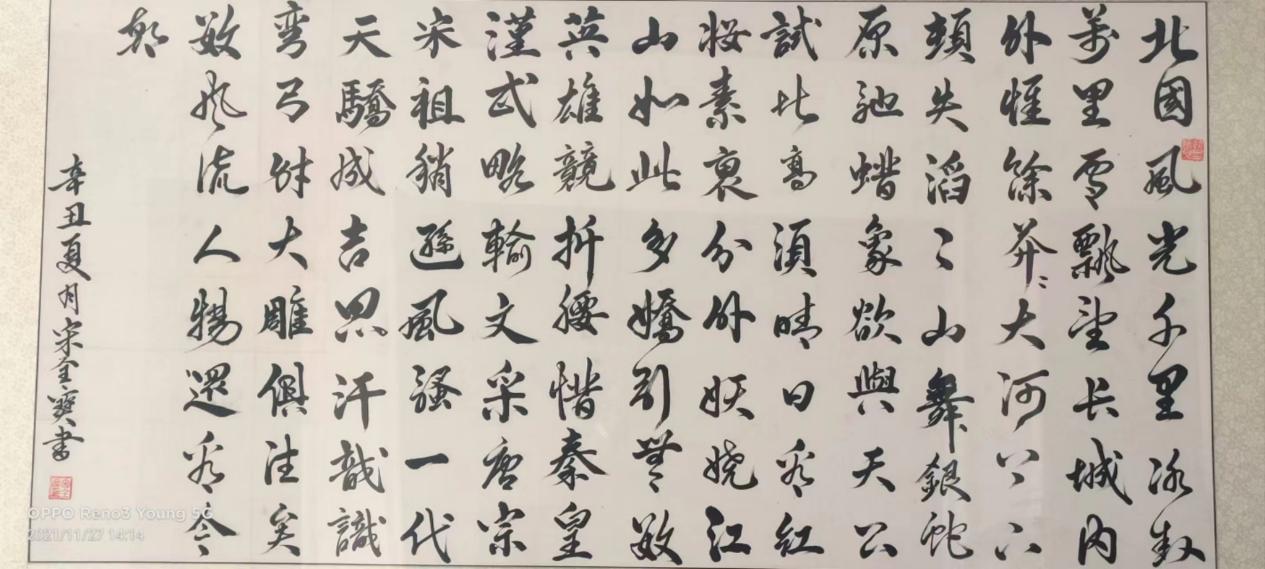 北國風光千里冰封
萬里雪飄望长城内
外惟餘莽〻大河上下
頓失滔〻山舞銀蛇
原馳蜡象欲與天公
試比高須晴日看紅
妝素裹分外妖娆江
山如此多嬌引無數
英雄競折腰惜秦皇
漢武略輸文采唐宗
宋祖稍遜風騷一代
天驕成吉思汗識
彎弓射大雕俱往矣
數風流人物還看今
朝
辛丑夏月宋全寶書
OPPO Reno3 Young 5G
2021/11/27 14:14